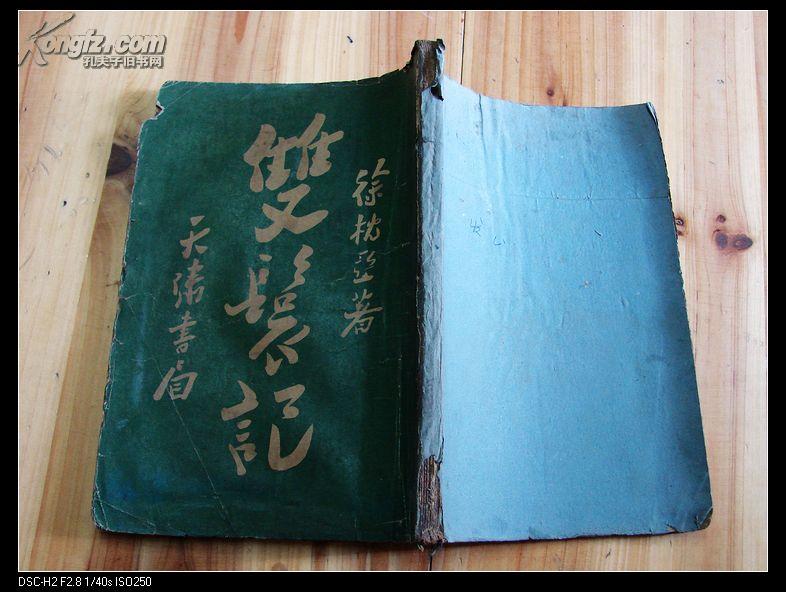 Kongfz.com
孔夫子旧书网
徐枕亞著
雙鬟記
書局
DSC-H2 F2.8 1/40s ISO250